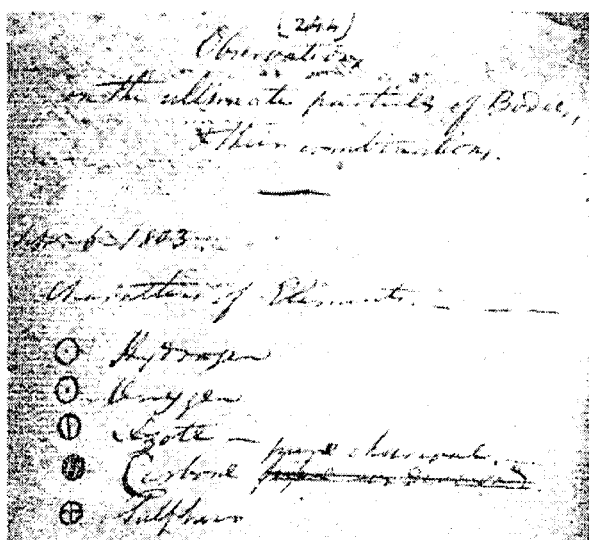 (244)
Observations
on the ultimate particles of Bodies,
& their combinations.
Sept. 6 1803
Characters of Elements.
Hydrogen
Oxygen
Azote
Carbone pure charcoal.
Sulphur